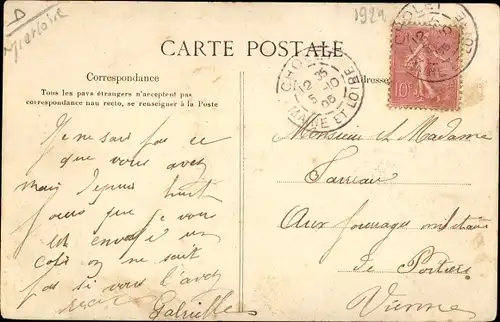 D
Militaire
1921
CARTE POSTALE
Correspondance
Tous les pays étrangers n'acceptent pas
correspondance nau recto, se renseigner à la Poste
Adresse
CHOLET
5 10
05
MAINE ET LOIRE
10
Je ne sais pas ce
que vous avez
mais depuis huit
jours que je vous
est envoyé un
colis on ne sait
pas si vous l'avez
recu Gabrielle
Monsieur et Madame
Aux fourrages militaire
de Poitiers
Vienne